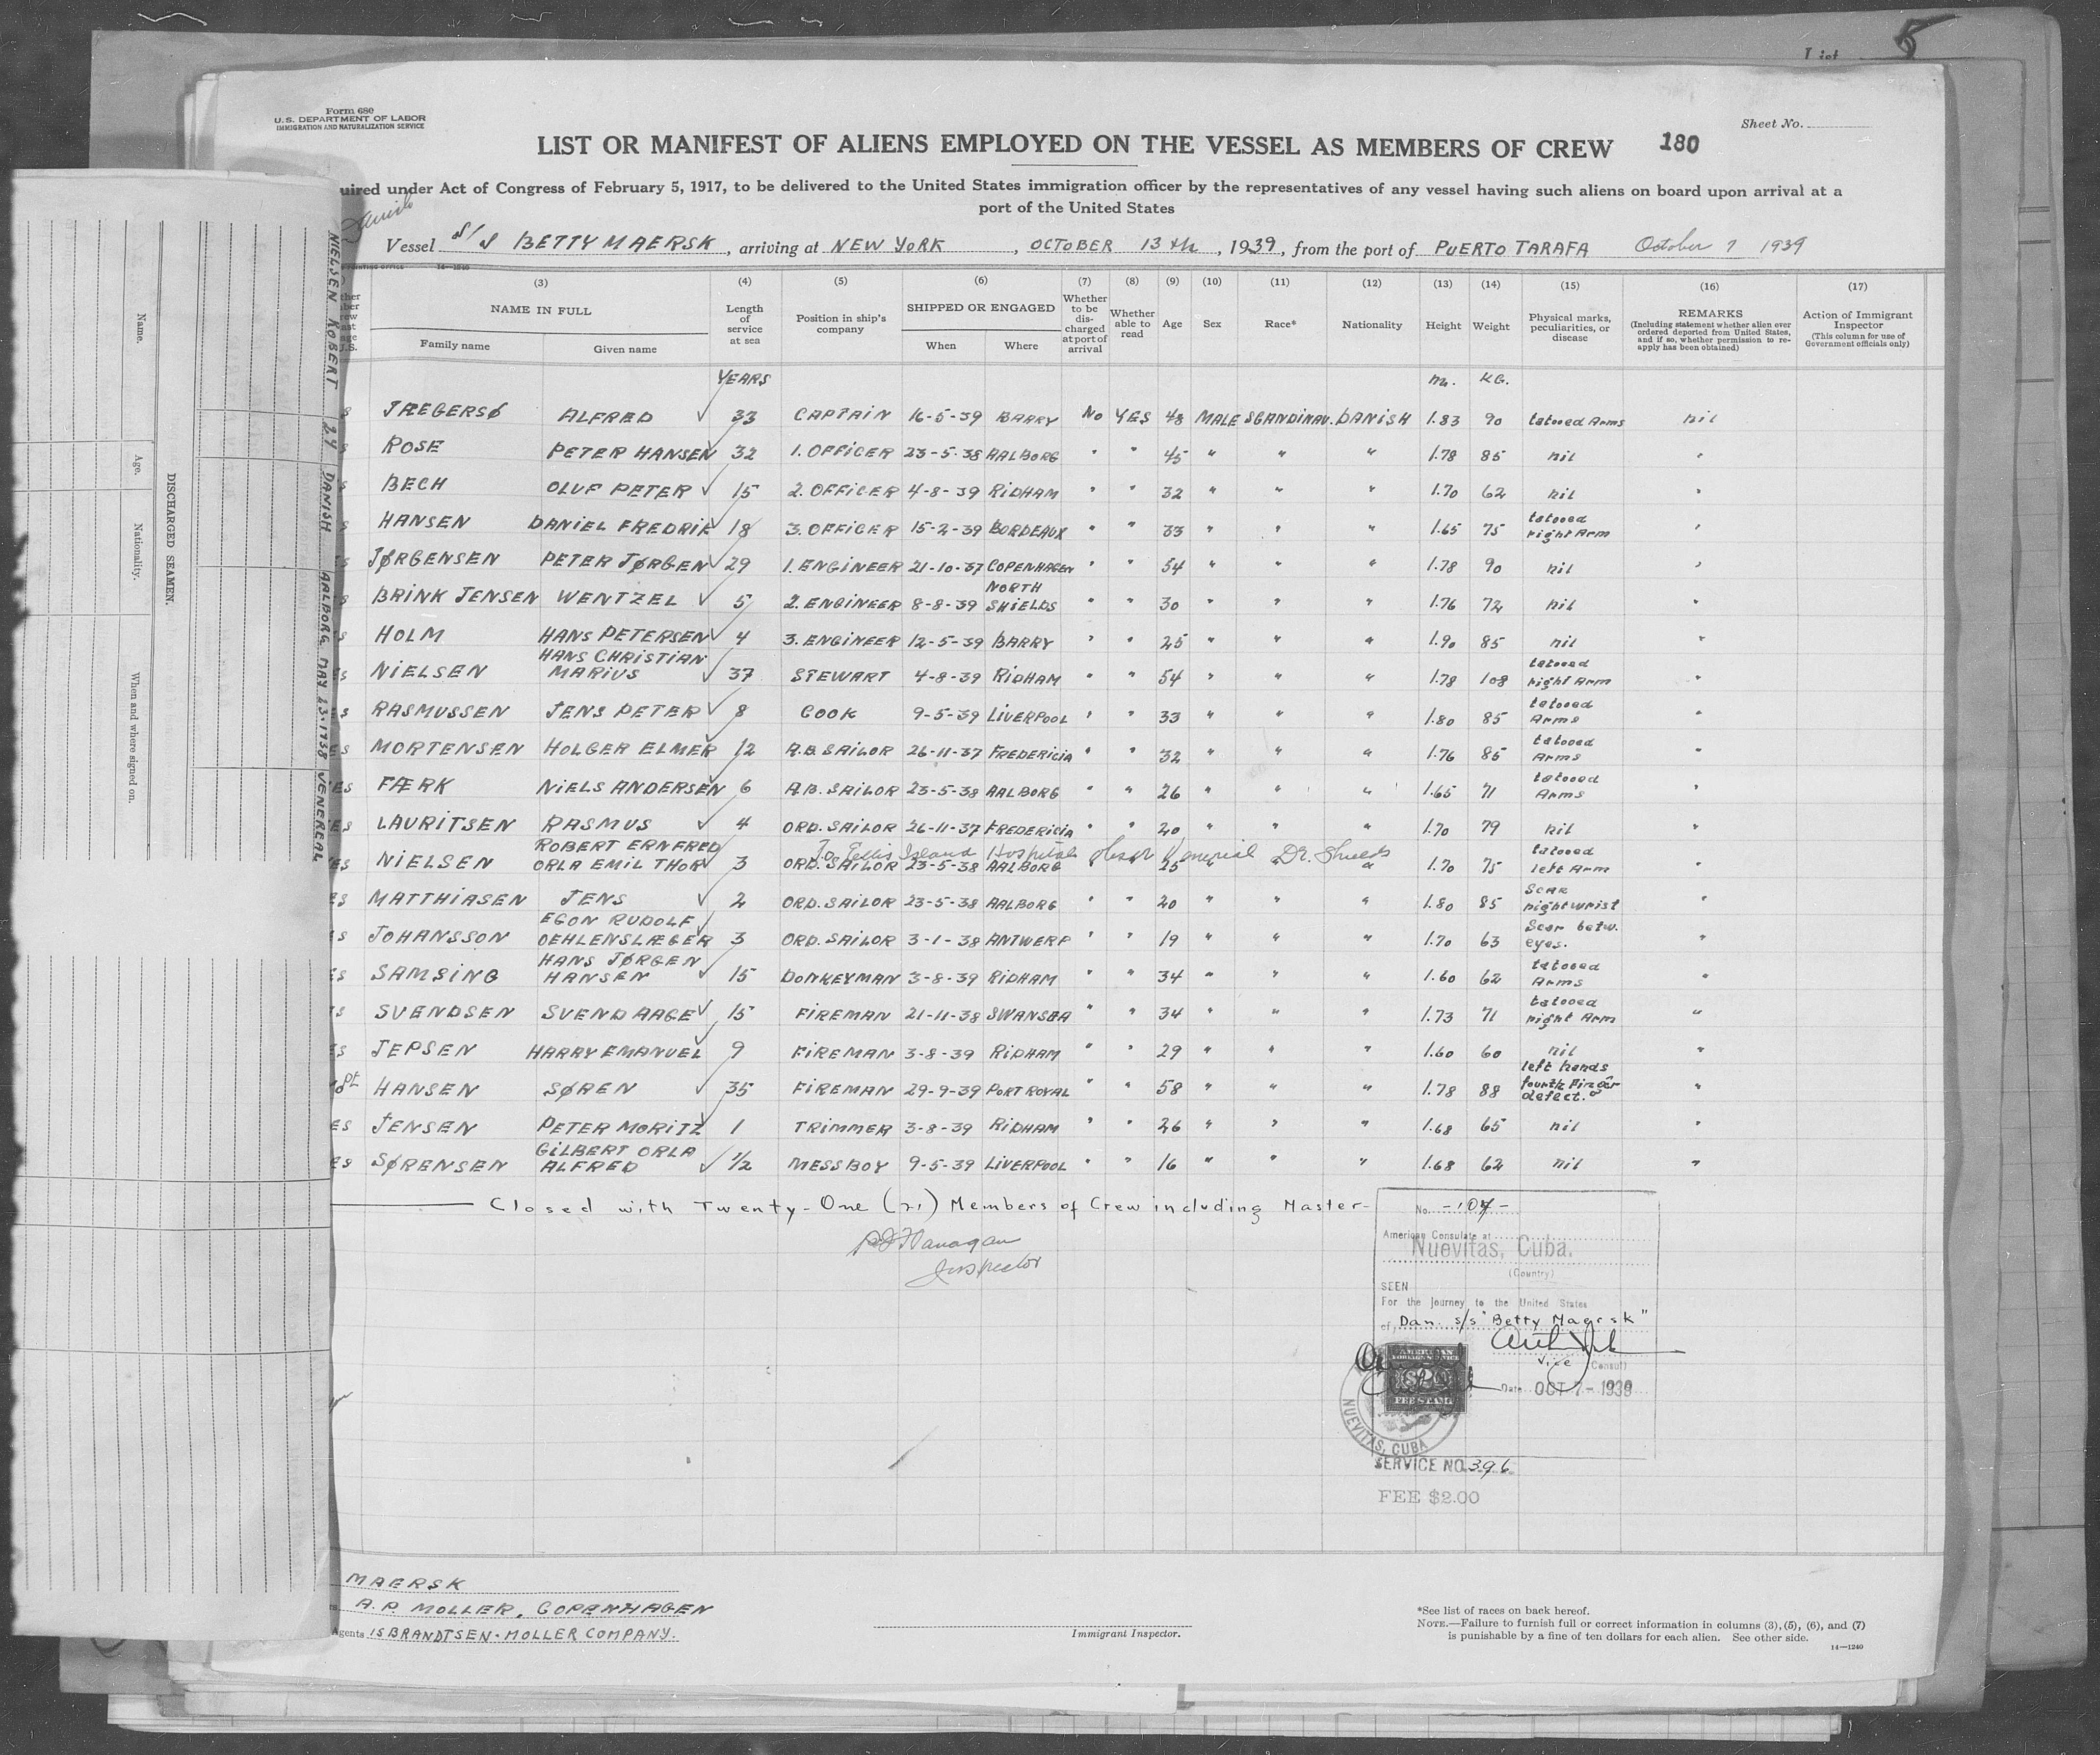 List 5
Form 680
U.S. DEPARTMENT OF LABOR
IMMIGRATION AND NATURALIZATION SERVICE
Sheet No.
LIST OR MANIFEST OF ALIENS EMPLOYED ON THE VESSEL AS MEMBERS OF CREW 180
uired under Act of Congress of February 5, 1917, to be delivered to the United States immigration officer by the representatives of any vessel having such aliens on board upon arrival at a
port of the United States
Vessel S/S BETTY MAERSK, arriving at NEW YORK, OCTOBER 13th, 1939, from the port of PUERTO TARAFA October 7 1939
(3) (4) (5) (6) (7) (8) (9) (10) (11) (12) (13) (14) (15) (16) (17)
NAME IN FULL
Family name Given name
Length of service at sea
Position in ship's company
SHIPPED OR ENGAGED
When Where
Whether to be discharged at port of arrival
Whether able to read
Age
Sex
Race*
Nationality
Height
Weight
Physical marks, peculiarities, or disease
REMARKS
(Including statement whether alien ever ordered deported from United States, and if so, whether permission to reapply has been obtained)
Action of Immigrant Inspector
(This column for use of Government officials only)
YEARS m. KG.
JÆGERSØ ALFRED ✓ 33 CAPTAIN 16-5-39 BARRY No YES 48 MALE SCANDINAV. DANISH 1.83 90 tatooed Arms nil
ROSE PETER HANSEN 32 1. OFFICER 23-5-38 AALBORG " " 45 " " " 1.78 85 nil "
BECH OLUF PETER ✓ 15 2. OFFICER 4-8-39 RIDHAM " " 32 " " " 1.70 62 nil "
HANSEN DANIEL FREDRIK 18 3. OFFICER 15-2-39 BORDEAUX " " 33 " " " 1.65 75 tatooed right Arm "
JØRGENSEN PETER JØRGEN ✓ 29 1. ENGINEER 21-10-37 COPENHAGEN " " 54 " " " 1.78 90 nil "
BRINK JENSEN WENTZEL ✓ 5 2. ENGINEER 8-8-39 NORTH SHIELDS " " 30 " " " 1.76 72 nil "
HOLM HANS PETERSEN ✓ 4 3. ENGINEER 12-5-39 BARRY " " 25 " " " 1.90 85 nil "
NIELSEN HANS CHRISTIAN MARIUS ✓ 37 STEWART 4-8-39 RIDHAM " " 54 " " " 1.78 108 tatooed right Arm "
RASMUSSEN JENS PETER ✓ 8 COOK 9-5-39 LIVERPOOL " " 33 " " " 1.80 85 tatooed Arms "
MORTENSEN HOLGER ELMER 12 A.B. SAILOR 26-11-37 FREDERICIA " " 32 " " " 1.76 85 tatooed Arms "
FÆRK NIELS ANDERSEN 6 A.B. SAILOR 23-5-38 AALBORG " " 26 " " " 1.65 71 tatooed Arms "
LAURITSEN RASMUS ✓ 4 ORD. SAILOR 26-11-37 FREDERICIA " " 20 " " " 1.70 79 nil "
To Ellis Island Hospital Venerial Dr. Shields
NIELSEN ROBERT ERNFRED ORLA EMIL THOR 3 ORD. SAILOR 23-5-38 AALBORG 25 " " 1.70 75 tatooed left Arm "
MATTHIASEN JENS ✓ 2 ORD. SAILOR 23-5-38 AALBORG " " 20 " " " 1.80 85 Scar right wrist "
JOHANSSON EGON RUDOLF OEHLENSLÆGER 3 ORD. SAILOR 3-1-38 ANTWERP " " 19 " " " 1.70 63 Scar betw. eyes. "
SAMSING HANS JØRGEN HANSEN ✓ 15 DONKEYMAN 3-8-39 RIDHAM " " 34 " " " 1.60 62 tatooed Arms "
SVENDSEN SVEND AAGE ✓ 15 FIREMAN 21-11-38 SWANSEA " " 34 " " " 1.73 71 tatooed right Arm "
JEPSEN HARRY EMANUEL 9 FIREMAN 3-8-39 RIDHAM " " 29 " " " 1.60 60 nil "
HANSEN SØREN ✓ 35 FIREMAN 29-9-39 PORT ROYAL " " 58 " " " 1.78 88 left hands fourth Finger defect. "
JENSEN PETER MORITZ 1 TRIMMER 3-8-39 RIDHAM " " 26 " " " 1.68 65 nil "
SØRENSEN GILBERT ORLA ALFRED ✓ 1/2 MESSBOY 9-5-39 LIVERPOOL " " 16 " " " 1.68 62 nil "
Closed with Twenty-One (21) Members of Crew including Master-
Flanagan
Inspector
No. -107-
American Consulate at
Nuevitas, Cuba.
(Country)
SEEN
For the Journey to the United States
of Dan. s/s "Betty Maersk"
Vice Consul
Date OCT 7 - 1939
AMERICAN FOREIGN SERVICE
$2
FEE STAMP
NUEVITAS, CUBA
SERVICE NO. 396
FEE $2.00
MAERSK
A.P. MOLLER, COPENHAGEN
Agents ISBRANDTSEN-MOLLER COMPANY.
Immigrant Inspector.
*See list of races on back hereof.
NOTE.—Failure to furnish full or correct information in columns (3), (5), (6), and (7)
is punishable by a fine of ten dollars for each alien. See other side.
14—1240
DISCHARGED SEAMEN.
Name.
Age.
Nationality.
When and where signed on.
NIELSEN ROBERT 24 DANISH AALBORG MAY 23-1938 VENEREAL